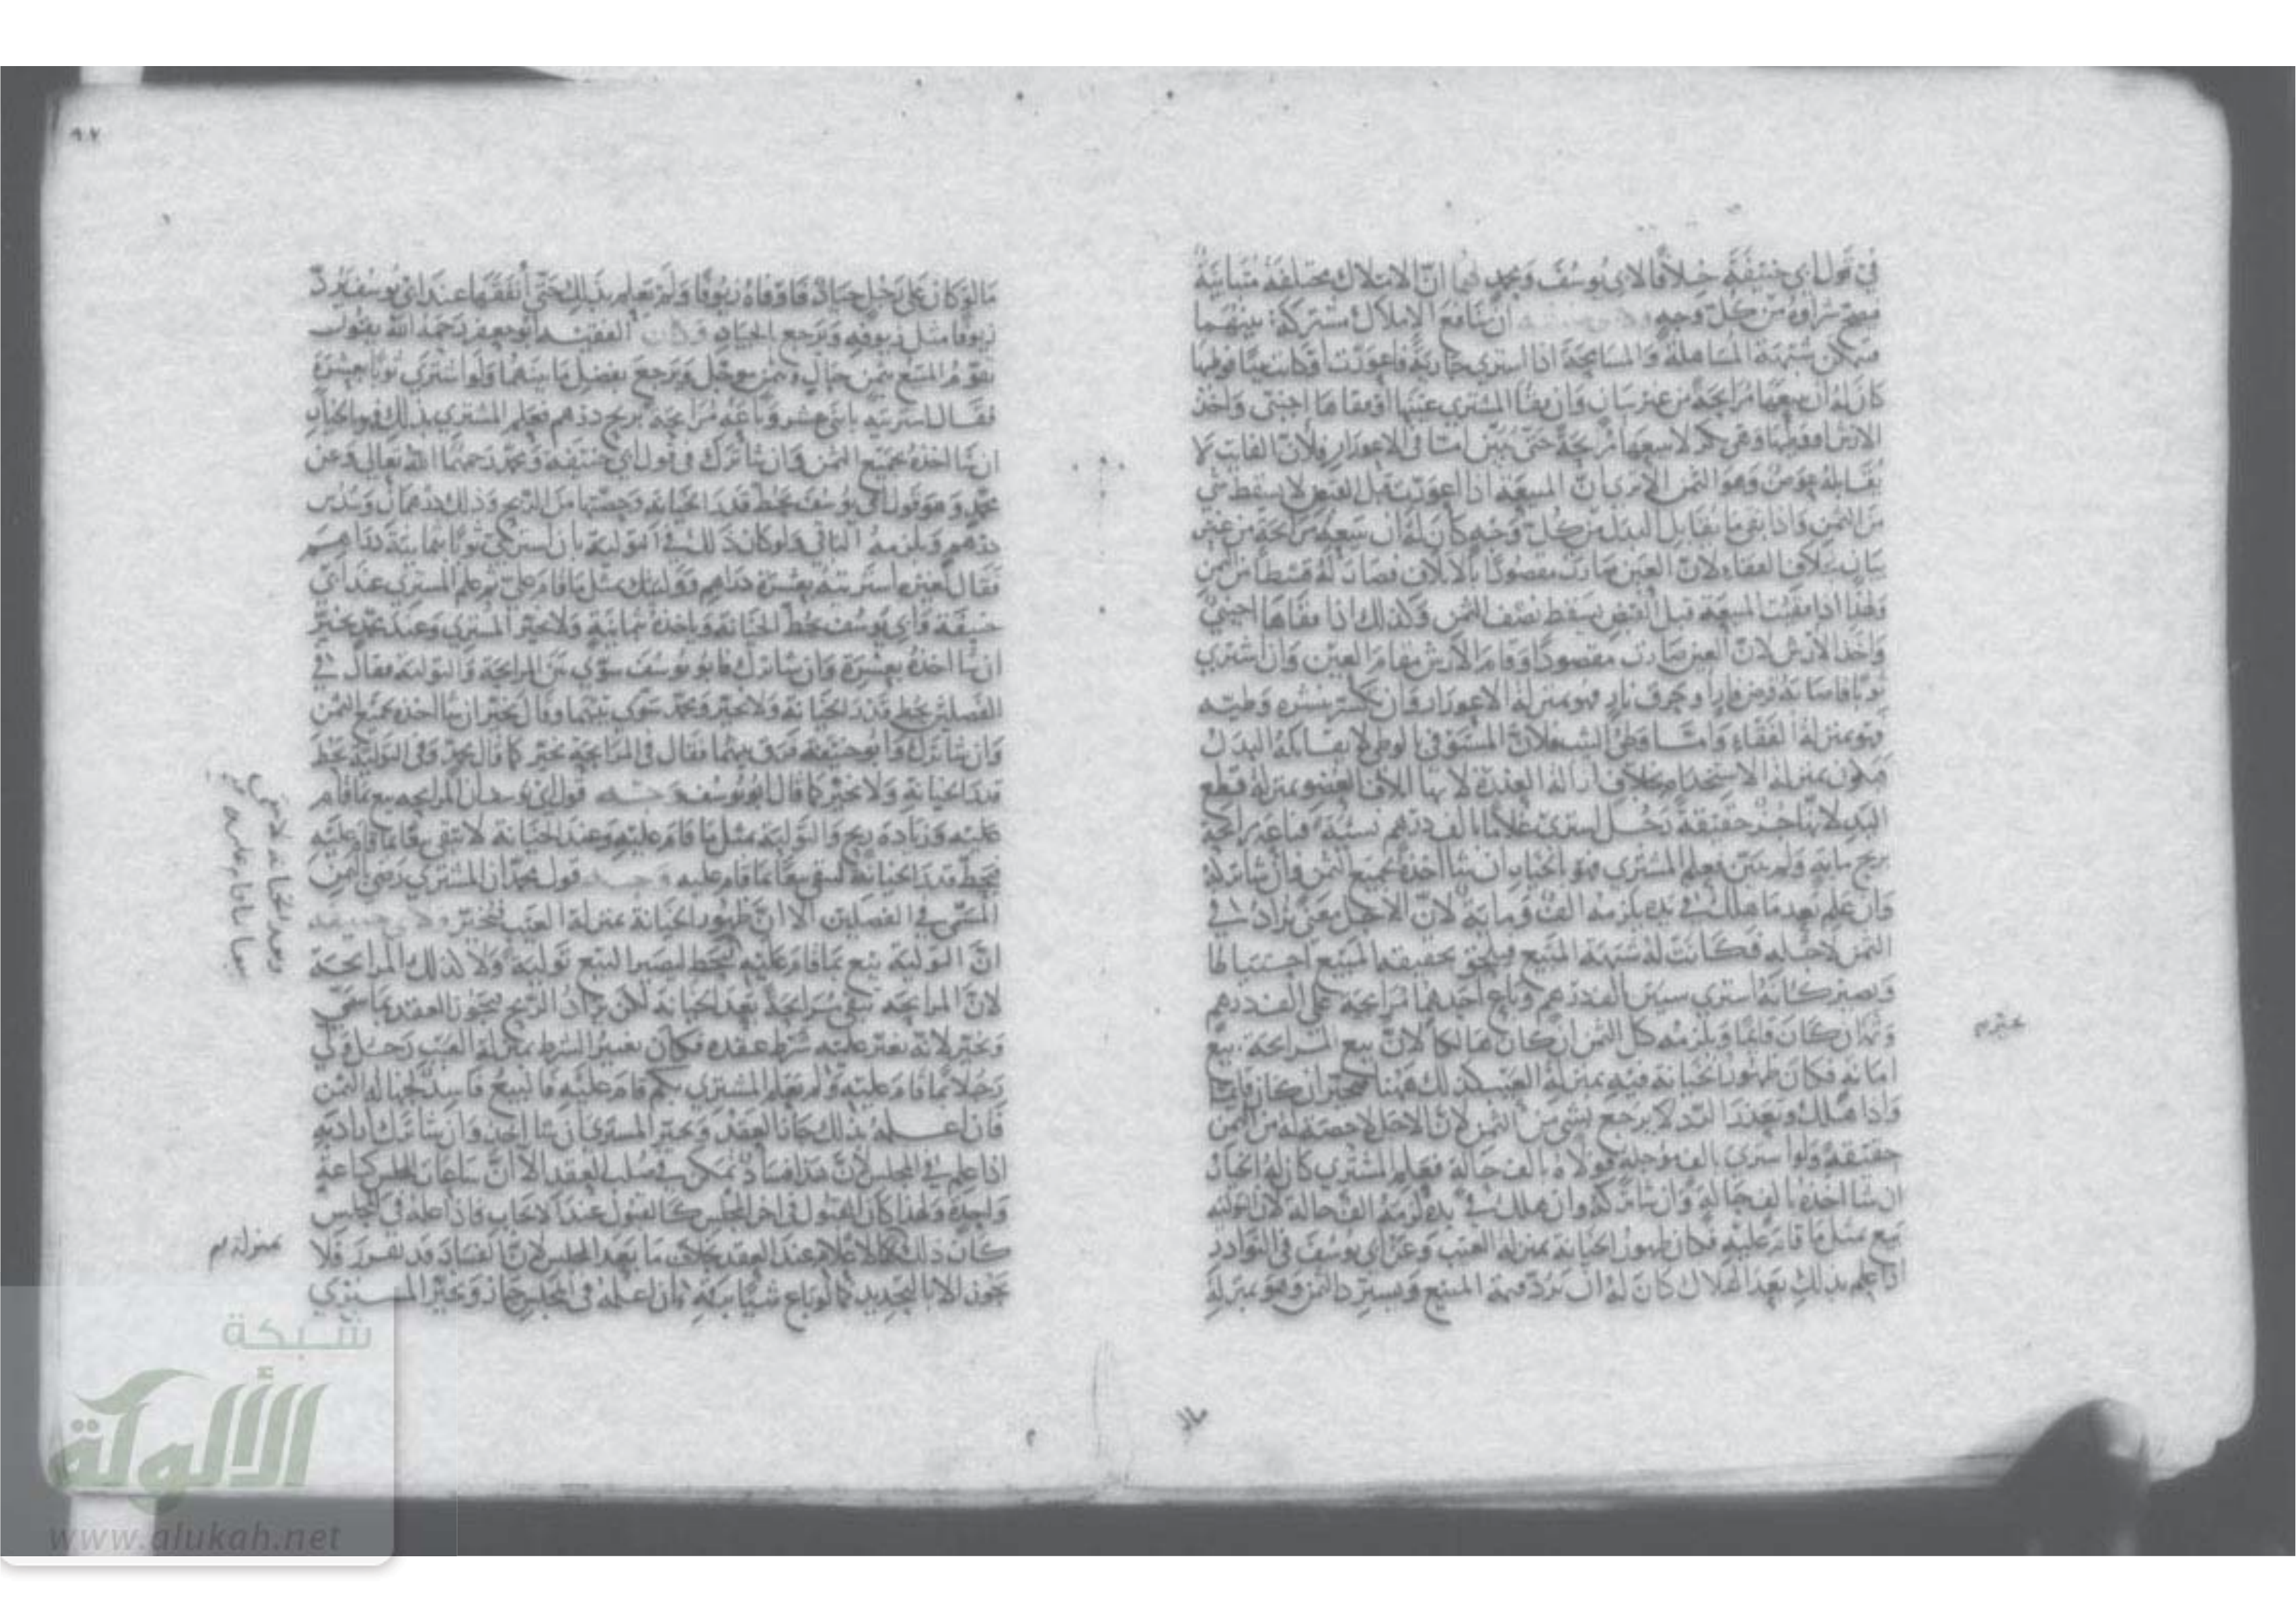 في قول أبي حنيفة خلافًا لأبي يوسف ومحمد لهما أن الاملاك مختلفة متباينة
فصح شراؤه من كل وجه ولأبي حنيفة أن منافع الاملاك مشتركة بينهما
شبهة المساهلة والمسامحة اذا اشترى جارية فاعورت او كانت ثيبا فوطئها
كان له ان يبيعها مرابحة من غير بيان وان فقأ المشتري عينها أو فقأها اجنبي واخذ
الارش لا يبيعها مرابحة حتى يبين اما في الاعورار فلان الفائت لا
يقابله عوض وهو الثمن الا ترى ان المبيعة اذا اعورت قبل القبض لا يسقط شي
من الثمن واذا بقي ما يقابل البدل من كل وجه كان له ان يبيعه مرابحة من غير
بيان بخلاف الفقاء لان العين صارت مقصودًا بالاتلاف فصار له قسطا من الثمن
ولهذا اذا فقئت المبيعة قبل القبض يسقط نصف الثمن وكذلك اذا فقأها اجنبي
واخذ الارش لان العين صارت مقصودًا وقام الارش مقام العين وان اشترى
ثوبًا فاصابه قرض فار او حرق نار فهو بمنزلة الاعورار فان تكسر بنشره وطيه
فهو بمنزلة الفقاء واما وطئ الثيب فلان المستوفى بالوطي لا يقابله البدل
فيكون بمنزلة الاستخدام بخلاف ازالة العذرة لانها اتلاف العضو بمنزلة قطع
اليد حقيقة رجل اشترى غلاما بالف درهم نسية فباعه مرابحة
بربح ماية ولم يبين فعلم المشتري فهو بالخيار ان شا اخذه بجميع الثمن وان شا تركه
وان علم بعد ما هلك في يده يلزمه الف وماية لان الاجل معنى يزاد في
الثمن لاجله فكانت له شبهة المبيع فيلحق بحقيقة المبيع احتياطا
ويصير كانه اشترى سيين بالف درهم وباع احدهما مرابحة على الف درهم
ان كان قايما ويلزمه كل الثمن ان كان هالكا لان بيع المرابحة بيع
امانة فكان ظهور الخيانة فيه بمنزلة العيب كذلك ههنا يخير ان كان قايما
واذا هلك وتعذر الرد لا يرجع بشي من الثمن لان الاجل لا حصة له من الثمن
حقيقة ولو اشترى بالف مؤجلة فولاه بالف حالة فعلم المشتري كان له الخيار
ان شا اخذه بالف حالة وان شا تركه وان هلك في يده لزمه الف حالة لان التولية
بيع بمثل ما قام عليه فكان ظهور الخيانة بمنزلة العيب وعن ابي يوسف في النوادر
اذا علم بذلك بعد الهلاك كان له ان يرد قيمة المبيع ويسترد الثمن وهو بمنزلة
يخير
مالو
٩٧
مالو كان على رجل جياد فاوفاه زيوفًا ولم يعلم بذلك حتى أنفقها عند ابي يوسف يرد
زيوفا مثل زيوفه ويرجع بالجياد وكان الفقيه ابو جعفر رحمه الله يقول
يقوم المبيع بثمن حال وثمن مؤجل ويرجع بفضل ما بينهما ولو اشترى ثوبًا بعشرة
فقال اشتريته باثني عشر وباعه مرابحة بربح درهم فعلم المشتري بذلك فهو بالخيار
ان شا اخذه بجميع الثمن وان شا ترك في قول ابي حنيفة ومحمد رحمهما الله تعالى وعن
محمد وهو قول ابي يوسف يحط قدر الخيانة وحصتها من الربح وذلك درهمان وسدس
درهم ويلزمه الباقي ولو كان ذلك في التولية بان اشترى ثوبًا بثمانية دراهم
فقال لغيره اشتريته بعشرة دراهم ووليتك بمثل ما قام علي ثم علم المشتري عند ابي
حنيفة وابي يوسف يحط الخيانة وياخذه بثمانية ولا يخير المشتري وعند محمد يخير
ان شا اخذه بعشرة وان شا ترك فابو يوسف سوى بين المرابحة والتولية فقال في
الفصلين يحط قدر الخيانة ولا يخير ومحمد سوى بينهما وقال يخير ان شا اخذه بجميع الثمن
وان شا ترك وابو حنيفة فرق بينهما فقال في المرابحة يخير كما قال محمد وفي التولية يحط
قدر الخيانة ولا يخير كما قال ابو يوسف وجه قول ابي يوسف ان المرابحة بيع بما قام
عليه وزيادة ربح والتولية بمثل ما قام عليه وعند الخيانة لا تبقى بيعًا بما قام عليه
فيحط قدر الخيانة لتبقى بيعًا بما قام عليه وجه قول محمد ان المشتري رضي بالثمن
المسمى في الفصلين الا ان ظهور الخيانة بمنزلة العيب فيخير ولابي حنيفة
ان التولية بيع بما قام عليه فيحط ليصير البيع تولية ولا كذلك المرابحة
لان المرابحة تبقى مرابحة بعد الخيانة لكن يزاد الربح فيجوز العقد بما سمى
ويخير لانه تغير عليه شرط عقده فكان تغيير الشرط بمنزلة العيب رجل ولى
رجلا بما قام عليه ولم يعلم المشتري بكم قام عليه فالبيع فاسد لجهالة الثمن
فان اعلمه بذلك جاز العقد ويخير المشتري ان شا اخذ وان شا ترك
اذا علم في المجلس لان هذا فساد تمكن في صلب العقد الا ان ساعات المجلس كساعة
واحدة ولهذا كان القبول في اخر المجلس كالقبول عند الايجاب فاذا اعلمه في المجلس
كان ذلك كالاعلام عند العقد بخلاف ما بعد المجلس لان الفساد قد تقرر فلا
يجوز الا بالتجديد كما لو باع شيئا برقمه فان اعلمه في المجلس جاز ويخير المشتري
وبعد الخيانة لا تبقى
بيعا بما قام عليه
بمنزلة
شبكة
الألوكة
www.alukah.net